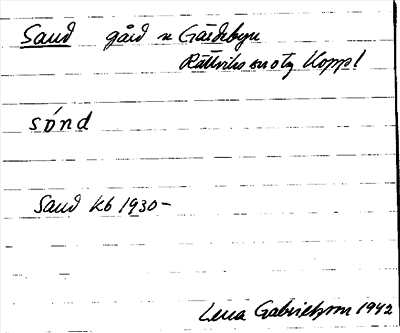 Sand gård n Gärdebyn
Rättviks sn o tg Koppl
sónd
Sand Kb 1930-
Lena Gabrielsson 1942